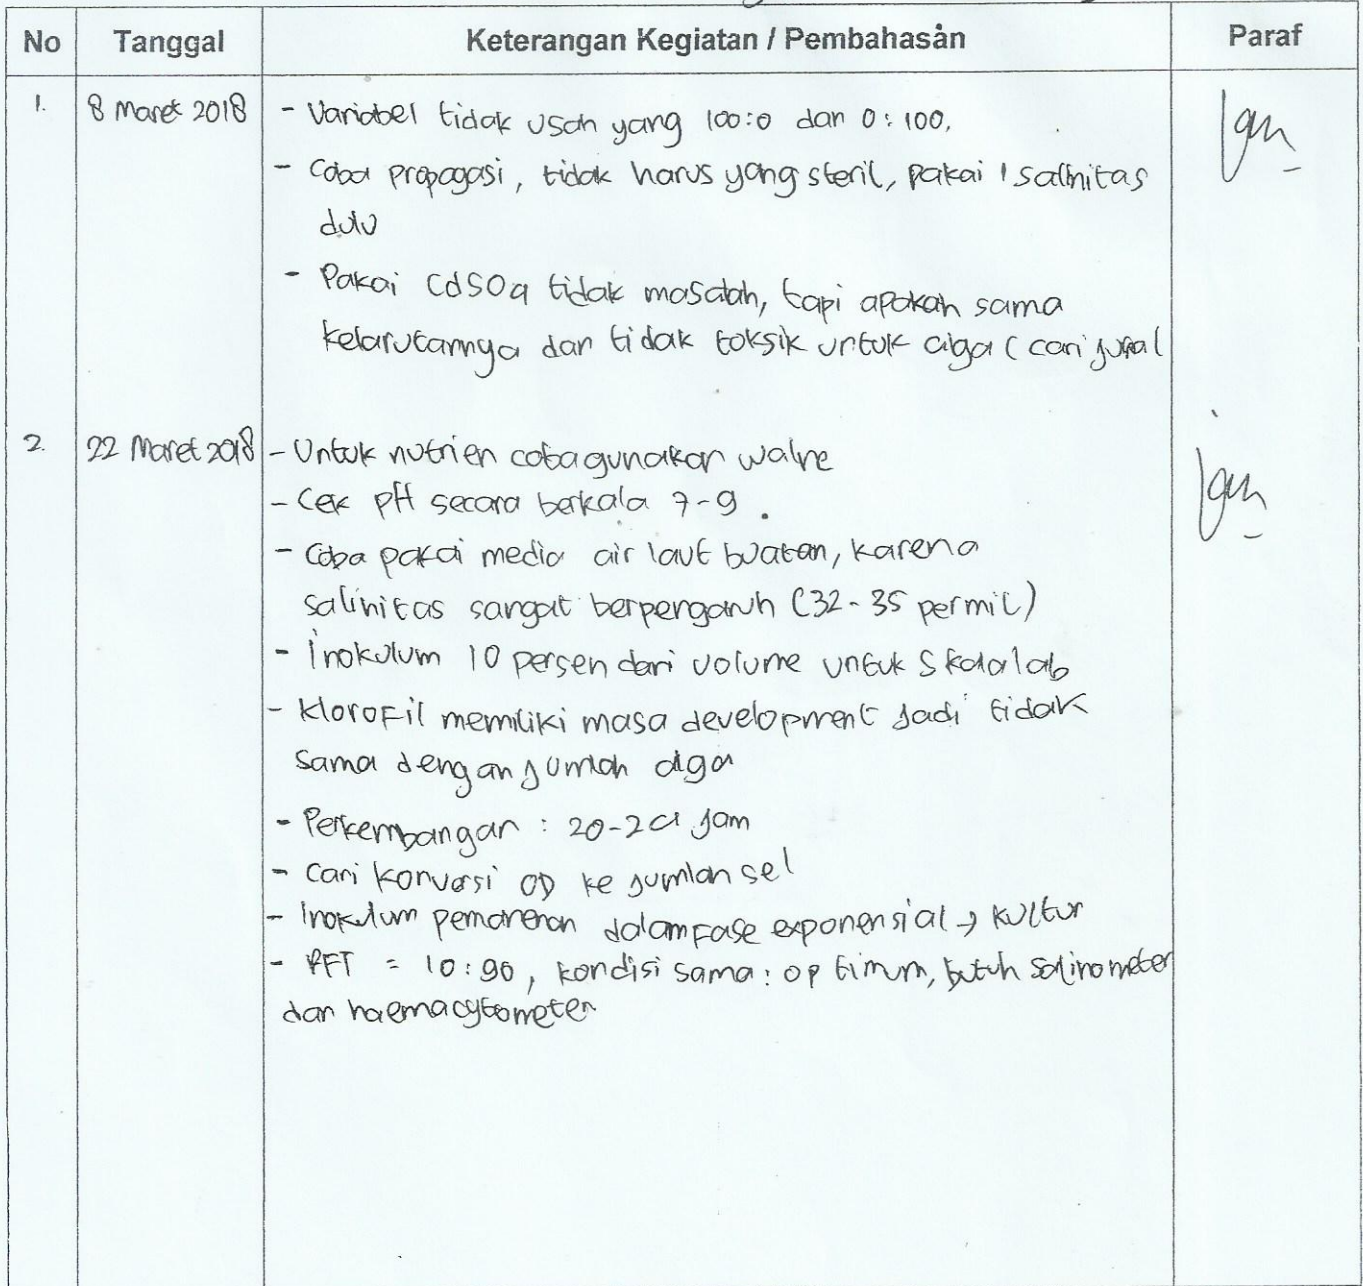 No Tanggal Keterangan Kegiatan / Pembahasan Paraf
1. 8 Maret 2018 - Variabel tidak usah yang 100:0 dan 0:100.
- Coba propagasi, tidak harus yang steril, pakai 1 salinitas
dulu
- Pakai CdSO4 tidak masalah, tapi apakah sama
kelarutannya dan tidak toksik untuk alga (cari jurnal
2. 22 Maret 2018 - Untuk nutrien coba gunakan walne
- Cek pH secara berkala 7-9.
- Coba pakai media air laut buatan, karena
salinitas sangat berpengaruh (32-35 permil)
- Inokulum 10 persen dari volume untuk skala lab
- Klorofil memiliki masa development jadi tidak
sama dengan jumlah alga
- Perkembangan : 20-24 jam
- Cari konversi OD ke jumlah sel
- Inokulum pemanenan dalam fase exponensial → kultur
- RFT = 10:90, kondisi sama: optimum, butuh salinometer
dan haemacytometer